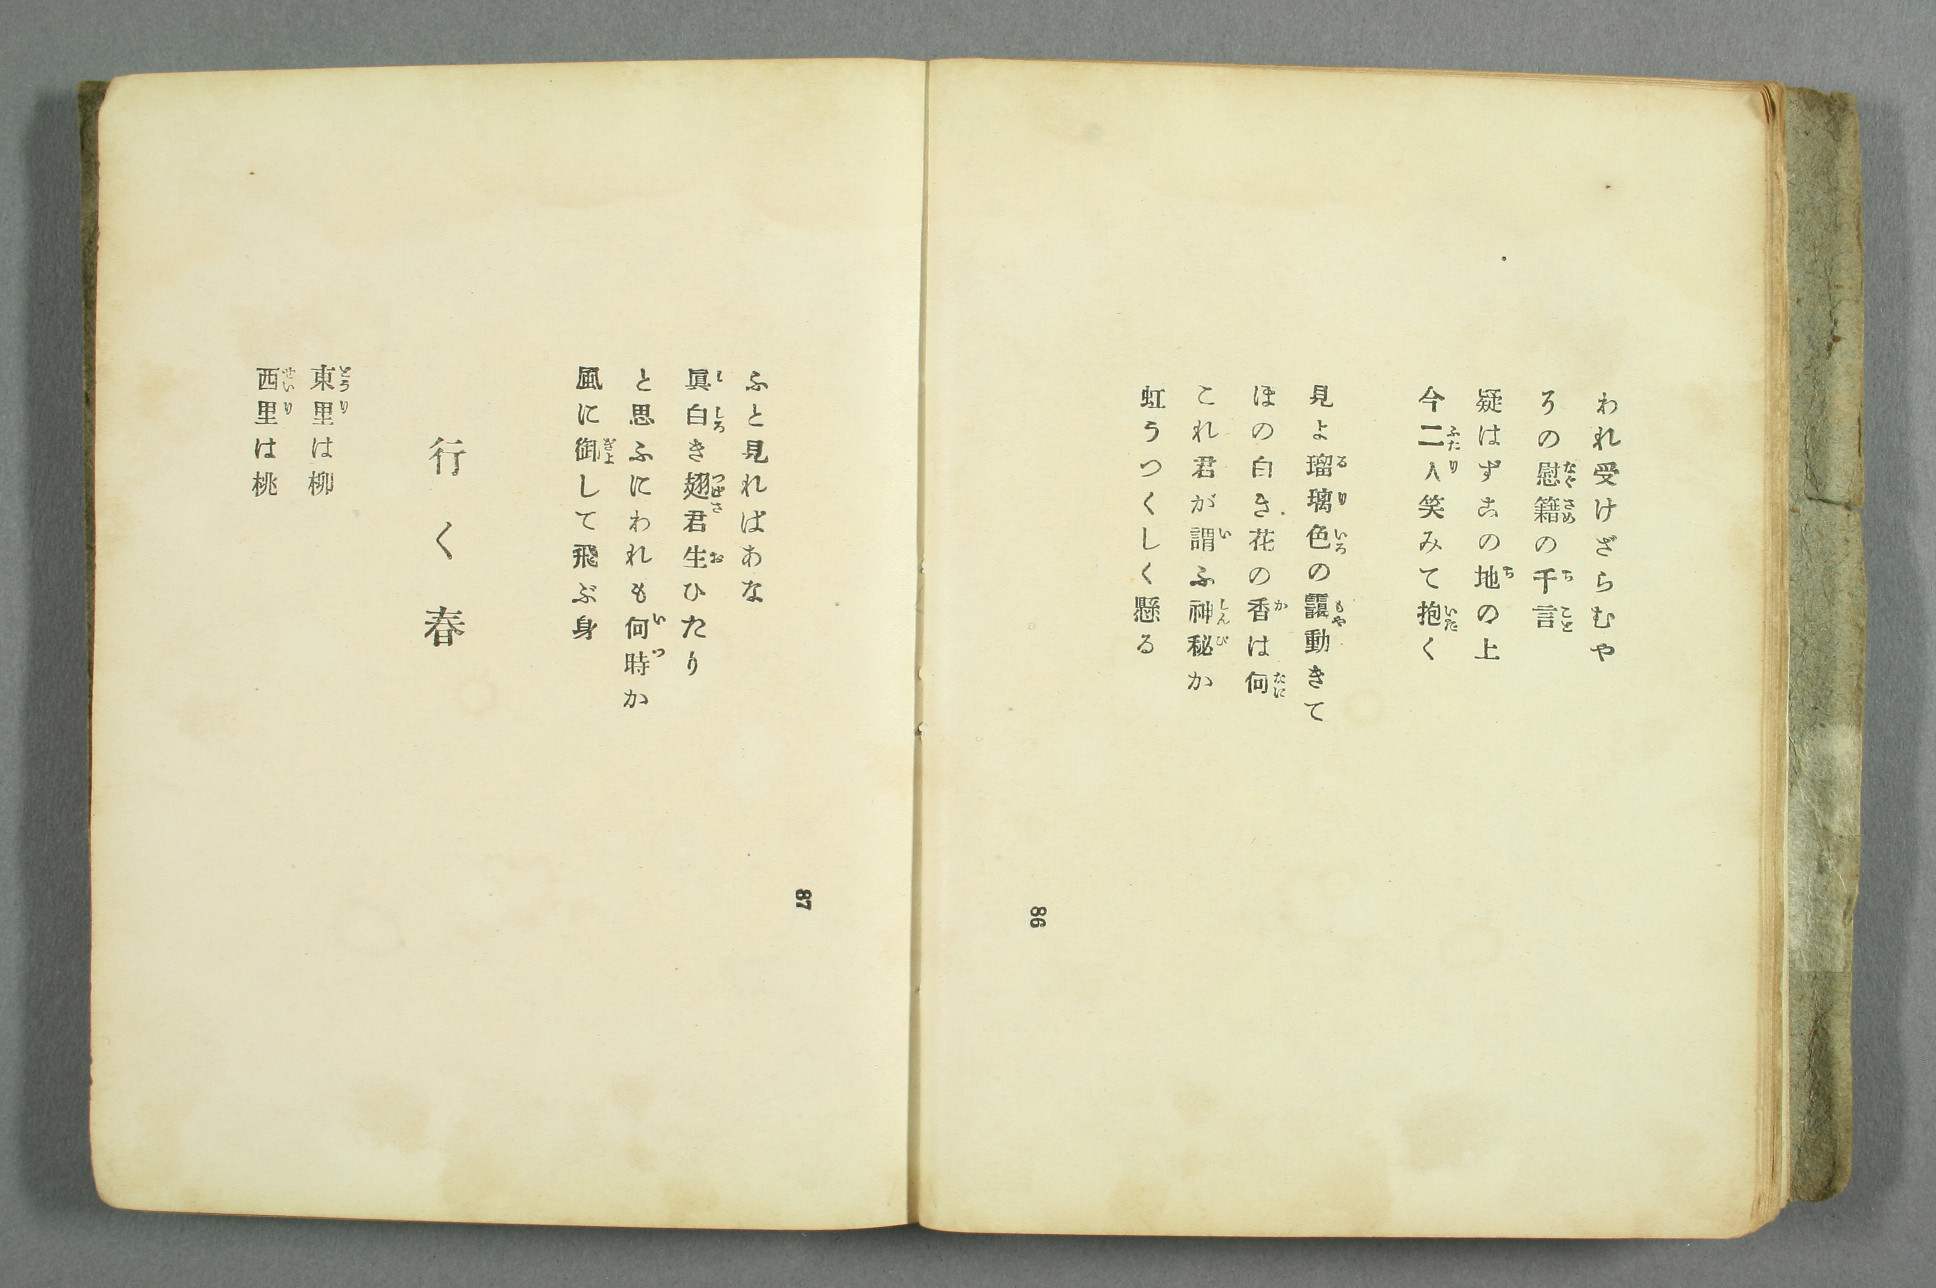 われ受けざらむや
ろの慰籍の千言
疑はずこの地の上
今二人笑みて抱く
見よ瑠璃色の靄動きて
ほの白き花の香は何
これ君が謂ふ神秘か
虹うつくしく懸る
86
ふと見ればあな
眞白き翅君生ひたり
と思ふにわれも何時か
風に御して飛ぶ身
行く春
東里は柳
西里は桃
87